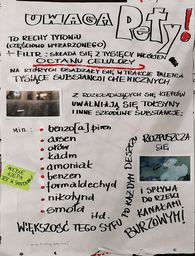 UWAGA Pety!
TO RESZTKI TYTONIU
(CZĘŚCIOWO WYPALONEGO)
+ FILTR: SKŁADA SIĘ Z TYSIĘCY WŁÓKIEN
OCTANU CELULOZY
NA KTÓRYCH OSADZAJĄ SIĘ W TRAKCIE PALENIA
TYSIĄCE SUBSTANCJI CHEMICZNYCH
Z ROZKŁADAJĄCYCH SIĘ KIEPÓW
UWALNIAJĄ SIĘ TOKSYNY
I INNE SZKODLIWE SUBSTANCJE:
Min.:
• benzo[a]piren
• arsen
• ołów
• kadm
• amoniak
• benzen
• formaldechyd
• nikotyna
• smoła
itd.
WIĘKSZOŚĆ TEGO SYFU PO KAŻDYM DESZCZU
ROZPUSZCZA
SIĘ
I SPŁYWA
DO RZEKI
KANAŁAMI
BURZOWYMI!